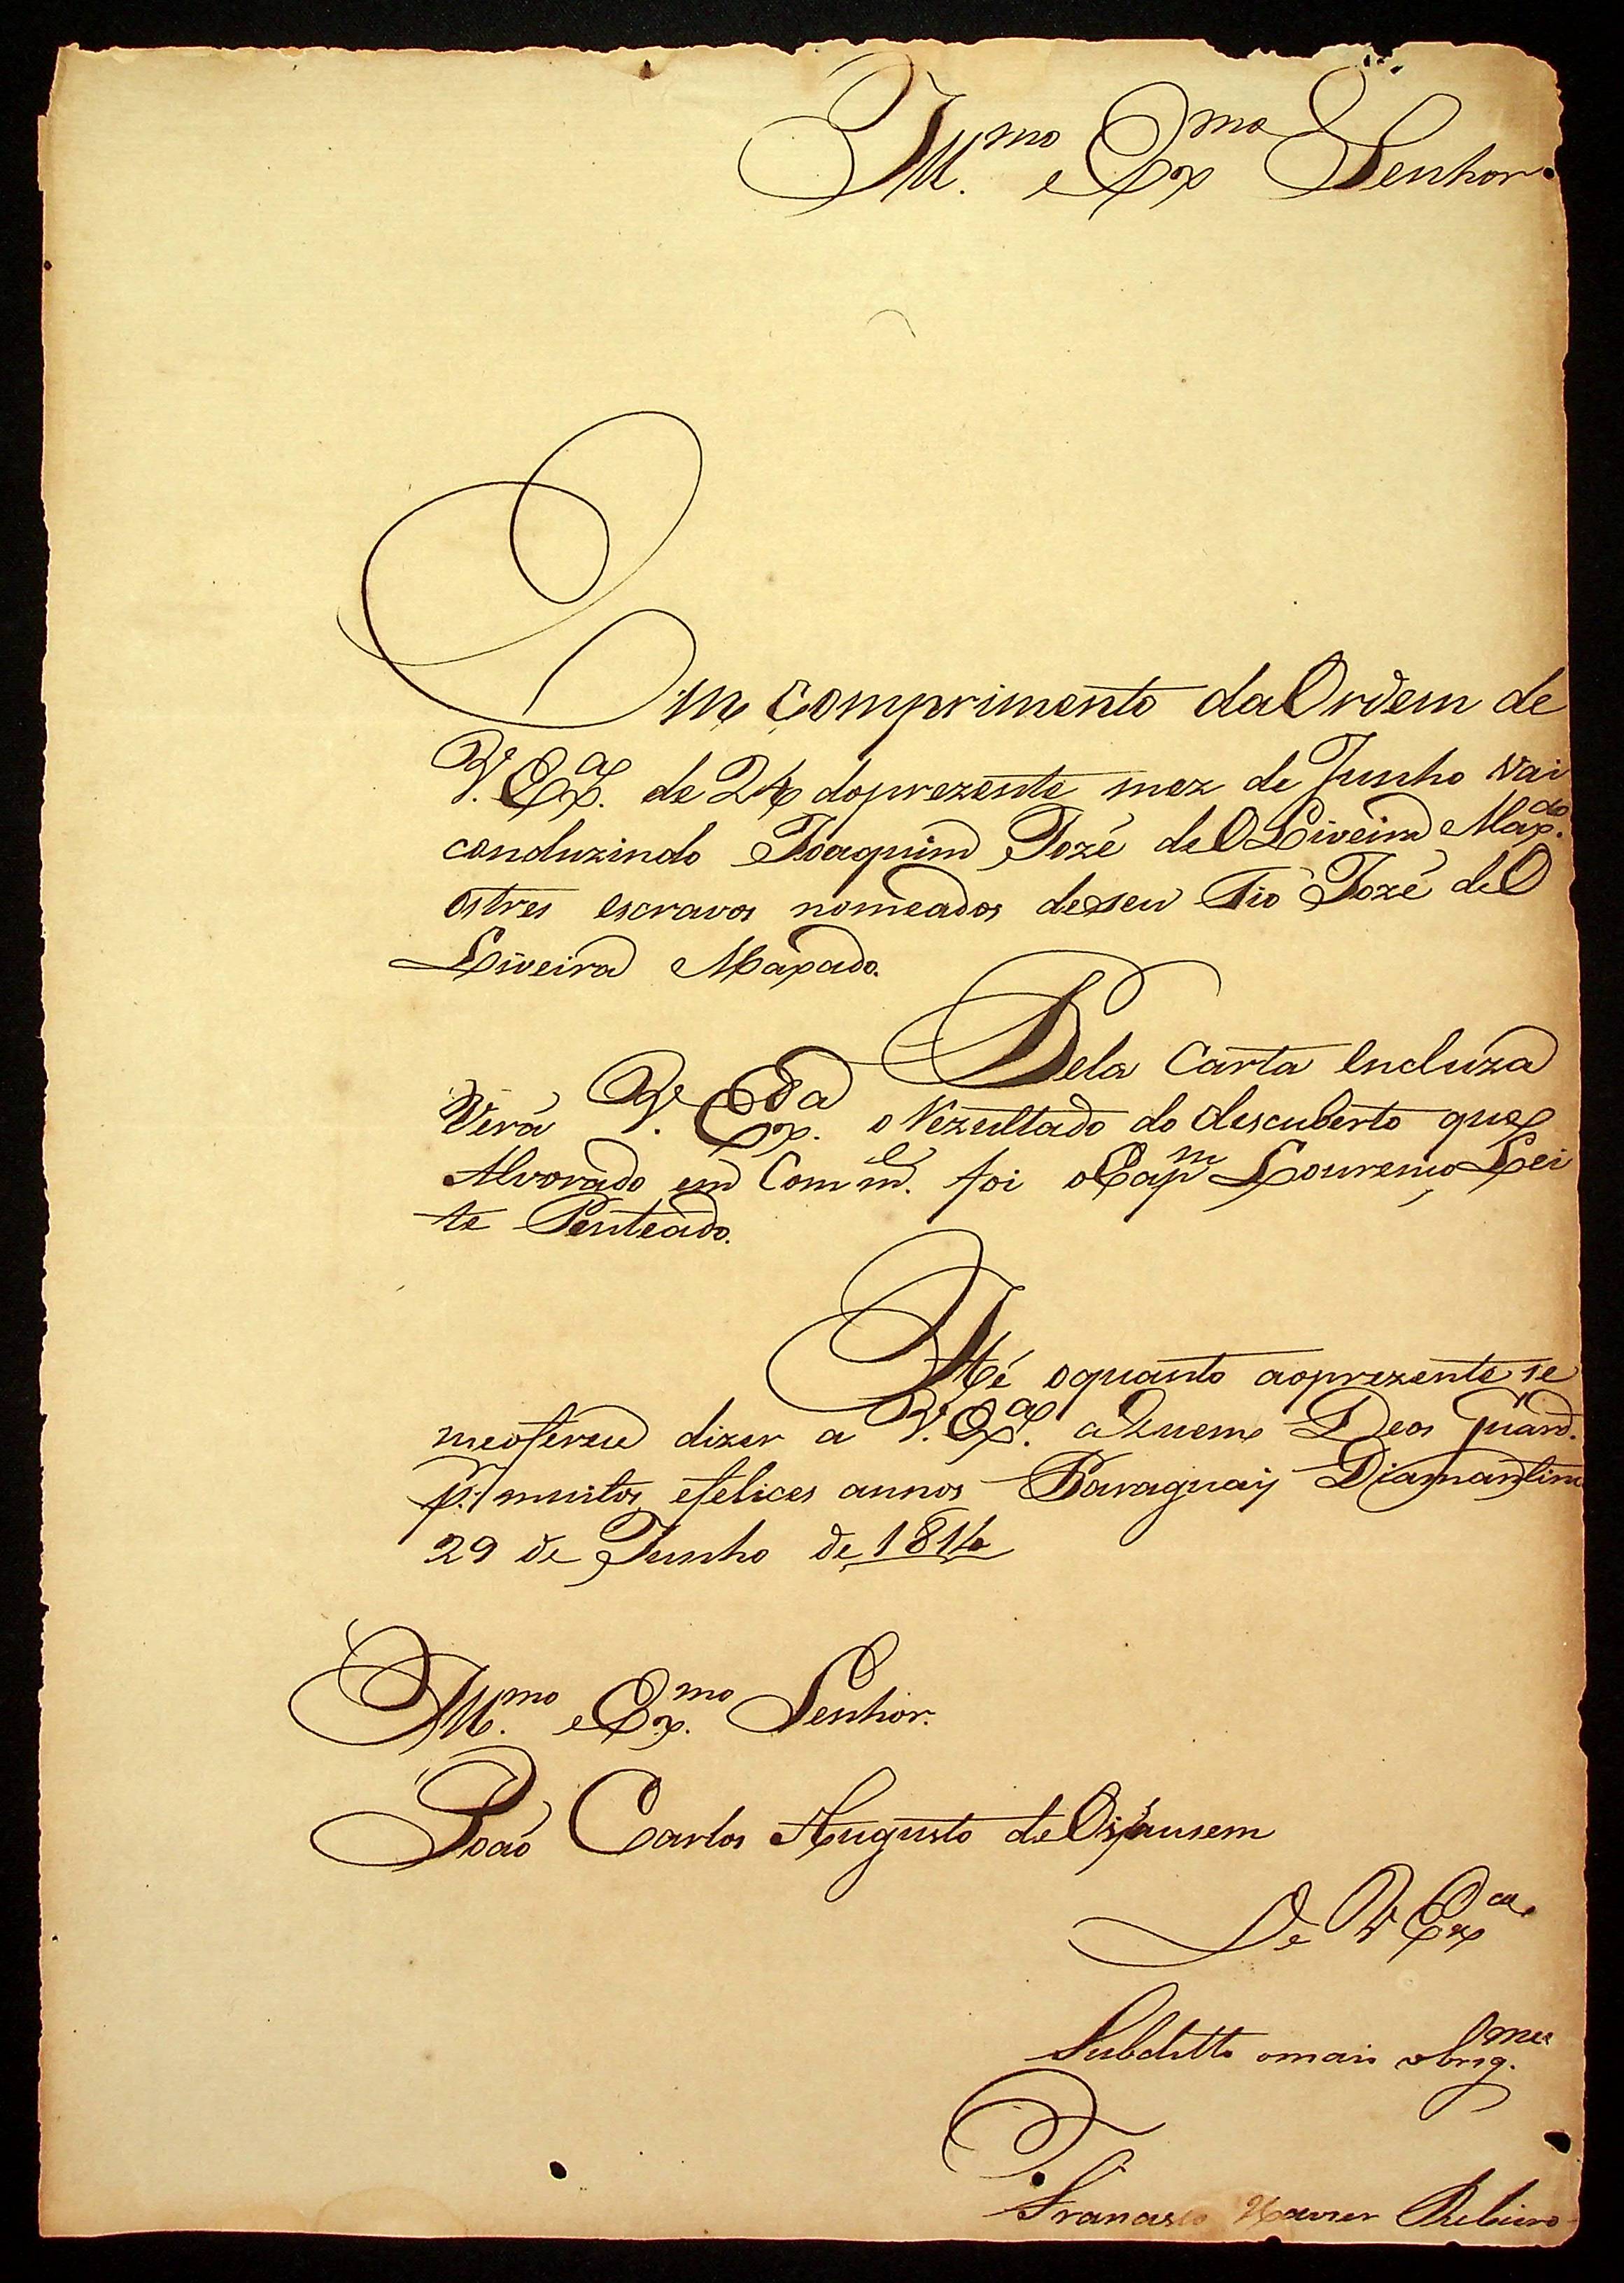 Ill.mo e Ex.mo Senhor.
Em Comprimento da Ordem de
V. Ex.a de 24 do prezente mez de Junho vai
conduzindo Joaquim Jozé de OLiveira Max.do
os tres escravos nomeados de seu Tio Jozé de O
Liveira Maxado.
Pela Carta Incluza
Verá V. Ex.a o Rezultado do descuberto que
Alvorado em Comm.e foi o Cap.m Lourenço Lei
te Penteado.
Hé o quanto ao prezente se
me oferece dizer a V. Ex.a a Quem Deos Guard.
p.r muitos e felices annos Paraguay Diamantino
29 de Junho de 1814
Ill.mo e Ex.mo Senhor.
João Carlos Augusto de
De V Ex.a
Subditto o mais obrig.
Francisco Xavier Ribeiro